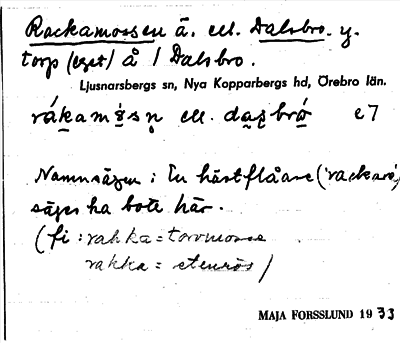 Rackamossen ä. ell. Dalsbro. y.
torp (eget) å / Dalsbro.
Ljusnarsbergs sn, Nya Kopparbergs hd, Örebro län.
rákamòsn ell. dazbró e7
Namnsägen: En hästflåare ('rackare')
säges ha bott här.
(fi: rahka = torvmosse
rakka = stenrös)
MAJA FORSSLUND 1933